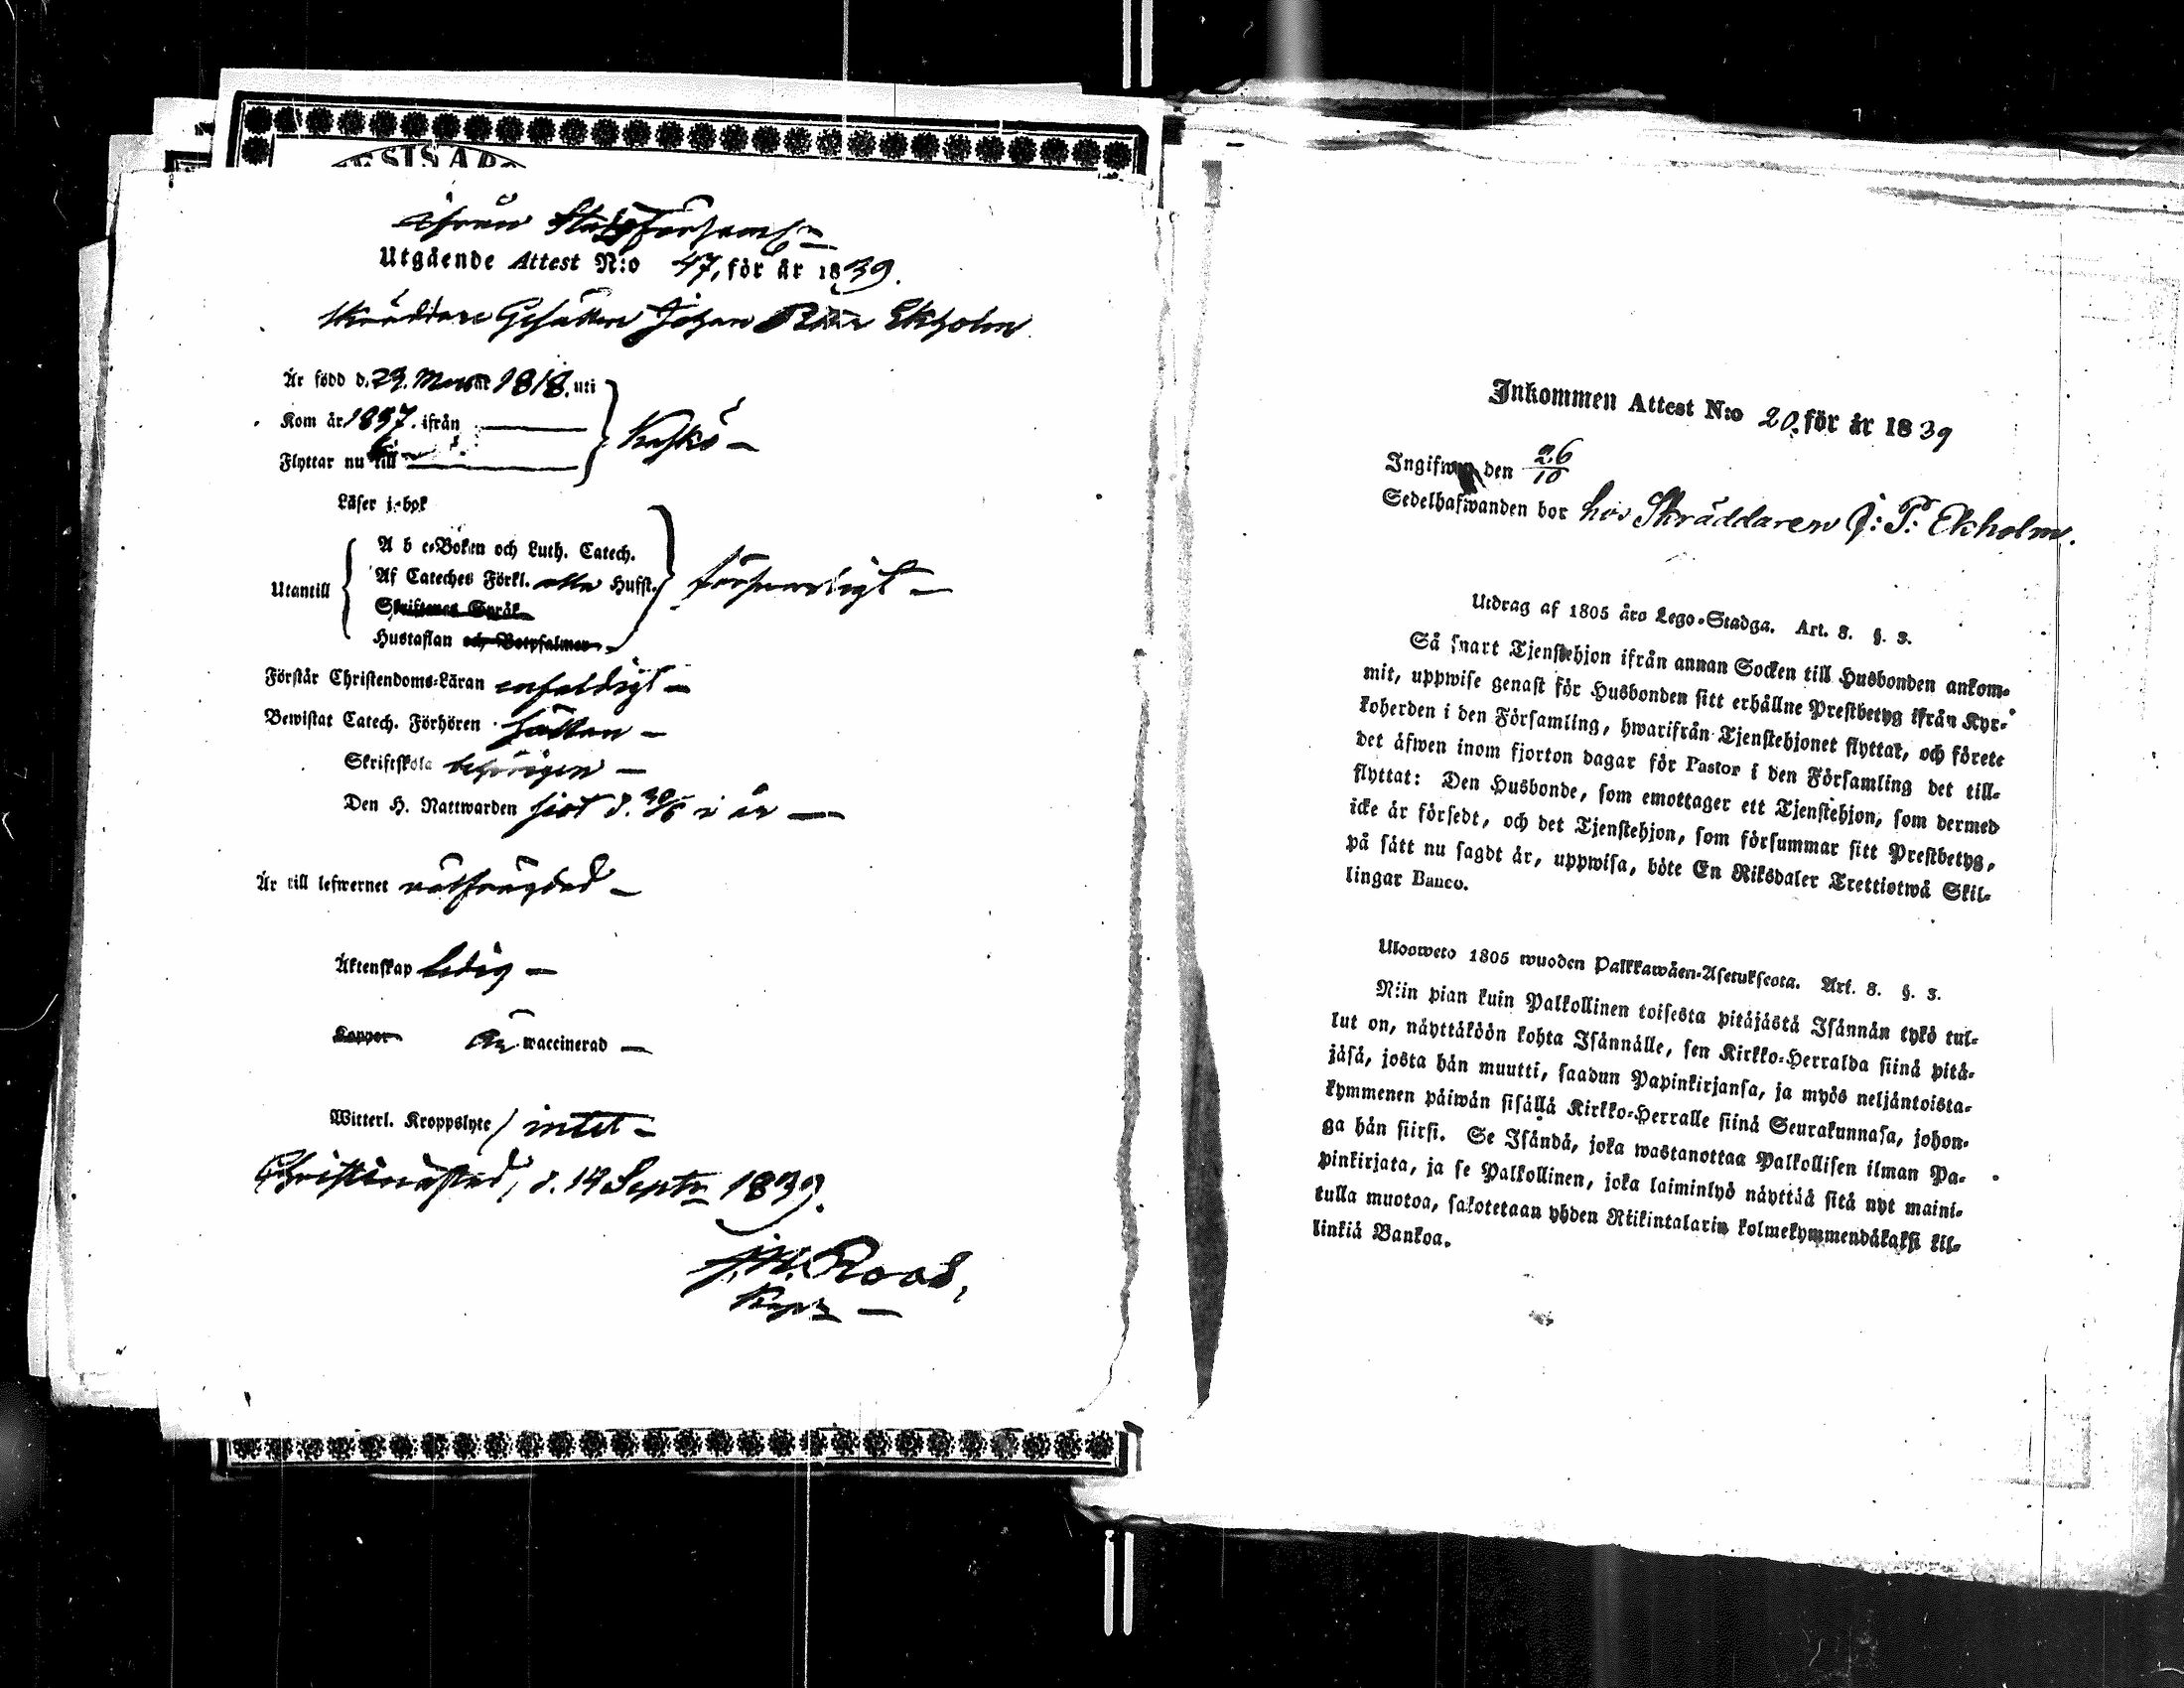 ifrån Stadsförsaml:n
Utgående Attest N:o 47, för år 1839.
Skräddare Gesällen Johan Ekholm
År född d. 29. 1818. uti
Kom år 1837. ifrån
Kaskö
Flyttar nu till
Läser i bok
A b c-Boken och Luth. Catech.
Af Cateches Förkl. alla Hufst.
Utantill
försvarligt
Skriftenes Språk
Hustaflan och Botpsalmer
Förstår Christendoms-Läran enfaldigt
Bewistat Catech. Förhören sällan
Skriftskola behörigen
Den H. Nattwarden sist d. 30/6 i år
Är till lefwernet välfrägdad
Äktenskap ledig
Koppor Är waccinerad
Witterl. Kroppslyte / intet
Christinæstad, d. 14 Septr 1839.
J. M. Roos,
Inkommen Attest N:o 20. för år 1839
Ingifwen den 26/10
Sedelhafwanden bor hos Skräddaren J: P: Ekholm.
Utdrag af 1805 års Lego-Stadga. Art. 8. §. 3.
Så snart Tjenstehjon ifrån annan Socken till Husbonden ankom-
mit, uppwise genast för Husbonden sitt erhållne Prestbetyg ifrån Kyr-
koherden i den Församling, hwarifrån Tjenstehjonet flyttat, och förete
det äfwen inom fjorton dagar för Pastor i den Församling det till-
flyttat: Den Husbonde, som emottager ett Tjenstehjon, som dermed
icke är försedt, och det Tjenstehjon, som försummar sitt Prestbetyg,
på sätt nu sagdt är, uppwisa, böte En Riksdaler Trettiotwå Skil-
lingar Banco.
Ulosweto 1805 wuoden Palkkawäen-Asetuksesta. Art. 8. §. 3.
Niin pian kuin Palkollinen toisesta pitäjästä Isännän tykö tul-
lut on, näyttäköön kohta Isännälle, sen Kirkko-Herralda siinä pitä-
jäsä, josta hän muutti, saadun Papinkirjansa, ja myös neljäntoista-
kymmenen päiwän sisällä Kirkko-Herralle siinä Seurakunnasa, johon-
ga hän siirsi. Se Isändä, joka wastanottaa Palkollisen ilman Pa-
pinkirjata, ja se Palkollinen, joka laiminlyö näyttää sitä nyt maini-
tulla muotoa, sakotetaan yhden Riikintalarin kolmekymmendäkaksi kil-
linkiä Bankoa.